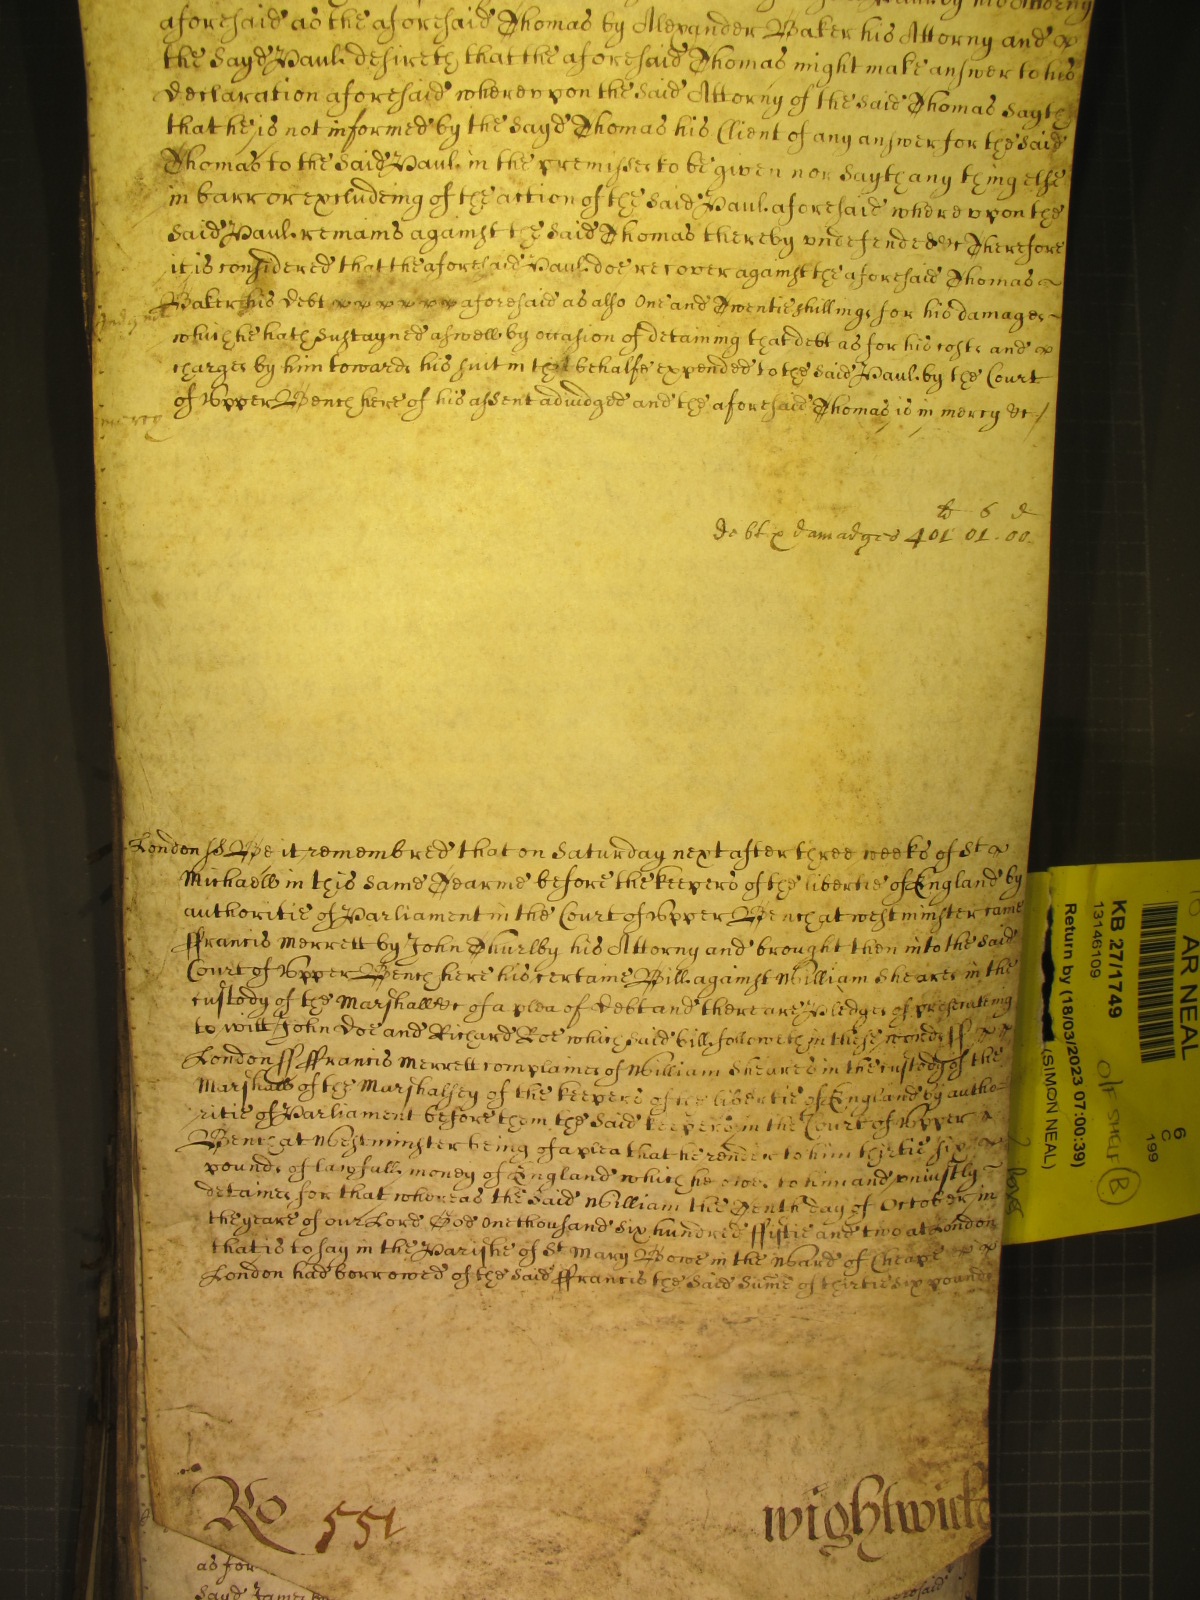 by his Attorny
aforesaid as the aforesaid Thomas by Alexander Baker his Attorny and
the Sayd Paul desireth that the aforesaid Thomas might make answer to his
declaration aforesaid wherevpon the said Attorny of the said Thomas Sayth
that he is not informed by the Sayd Thomas his Client of any answer for the said
Thomas to the said Paul in the premisses to be given nor Sayth any thing else
in barr or excludeing of the action of the said Paul aforesaid wherevpon the
said Paul remains against the said Thomas thereby vndefended &c Therefore
it is considered that the aforesaid Paul doe recover against the aforesaid Thomas
Baker his debt aforesaid as also One and Twentie shillings for his damages
which he hath Sustayned aswell by occasion of detaining that debt as for his costs and
charges by him towards his suit in that behalfe expended to the said Paul by the Court
of Vpper Bench here of his assent adiudged and the aforesaid Thomas is in mercy &c
mercy
li s d
debt & damadges 401 01. 00
London ss Be it remembred that on Saturday next after three weeks of St
Michaell in this same Tearme before the keepers of the libertie of England by
authoritie of Parliament in the Court of Vpper Bench at westminster came
ffrancis Merrett by John Thurlby his Attorny and brought then into the said
Court of Vpper Bench here his certaine Bill against William Sheares in the
custody of the Marshall &c of a plea of debt and there are Pledges of prosecuting
to witt John Doe and Richard Roe which said bill followeth in these words ss
London ss ffrancis Merrett complaines of William Sheares in the custody of the
Marshall of the Marshalsey of the keepers of the libertie of England by autho-
ritie of Parliament before them the said keepers in the Court of Vpper
Bench at Westminster being of a plea that he render to him thirtie six
pounds of lawfull money of England which he owes to him and vniustly
detaines for that whereas the said William the Tenth day of October in
the yeare of our Lord God One thousand Six hundred ffiftie and two at London
that is to say in the Parishe of St Mary Bowe in the Ward of Cheape
London had borrowed of the said ffrancis the said Summe of thirtie six pounds
Ro 551 wightwick
as for
Sayd James
AR NEAL
6
C
199
KB 27/1749
13146109
O/F SHELF (B)
Return by (18/03/2023 07:00:39)
(SIMON NEAL)